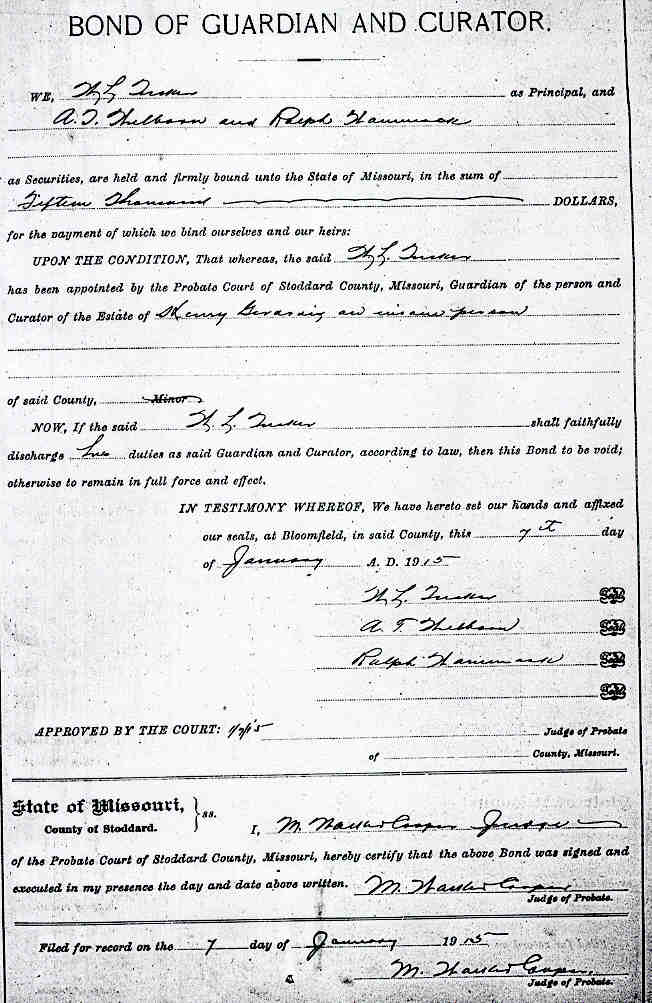 BOND OF GUARDIAN AND CURATOR.
WE, W L Tucker as Principal, and
A. T. Welborn and Ralph Hammack
as Securities, are held and firmly bound unto the State of Missouri, in the sum of
Fifteen Thousand DOLLARS,
for the payment of which we bind ourselves and our heirs:
UPON THE CONDITION, That whereas, the said W L. Tucker
has been appointed by the Probate Court of Stoddard County, Missouri, Guardian of the person and
Curator of the Estate of Henry an insane person
of said County, Minor
NOW, If the said W. L. Tucker shall faithfully
discharge his duties as said Guardian and Curator, according to law, then this Bond to be void;
otherwise to remain in full force and effect.
IN TESTIMONY WHEREOF, We have hereto set our hands and affixed
our seals, at Bloomfield, in said County, this 7th day
of January A. D. 1915
W L. Tucker Seal
A. T. Welborn Seal
Ralph Hammack Seal
Seal
APPROVED BY THE COURT: 1/7/15 Judge of Probate
of County, Missouri.
State of Missouri, } ss.
County of Stoddard.
I, M. Walker Cooper Judge
of the Probate Court of Stoddard County, Missouri, hereby certify that the above Bond was signed and
executed in my presence the day and date above written. M. Walker Cooper
Judge of Probate.
Filed for record on the 7 day of January 1915
M. Walker Cooper,
Judge of Probate.